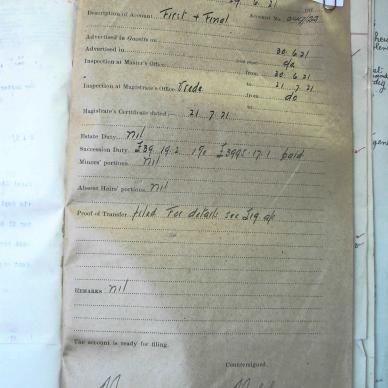 29.6.21 191
Description of Account First & Final Account No.
Advertised in Gazette on
Advertised in 30.6.21
Inspection at Master's Office do
from 30.6.21
to 21.7.21
Inspection at Magistrate's Office from do
to
Magistrate's Certificate dated 21.7.21
Estate Duty nil
Succession Duty £39.19.2 1% £3995.17.1 paid
Minors' portions nil
Absent Heirs' portions nil
Proof of Transfer filed For details see £19 a/c
REMARKS nil
The account is ready for filing.
Countersigned.